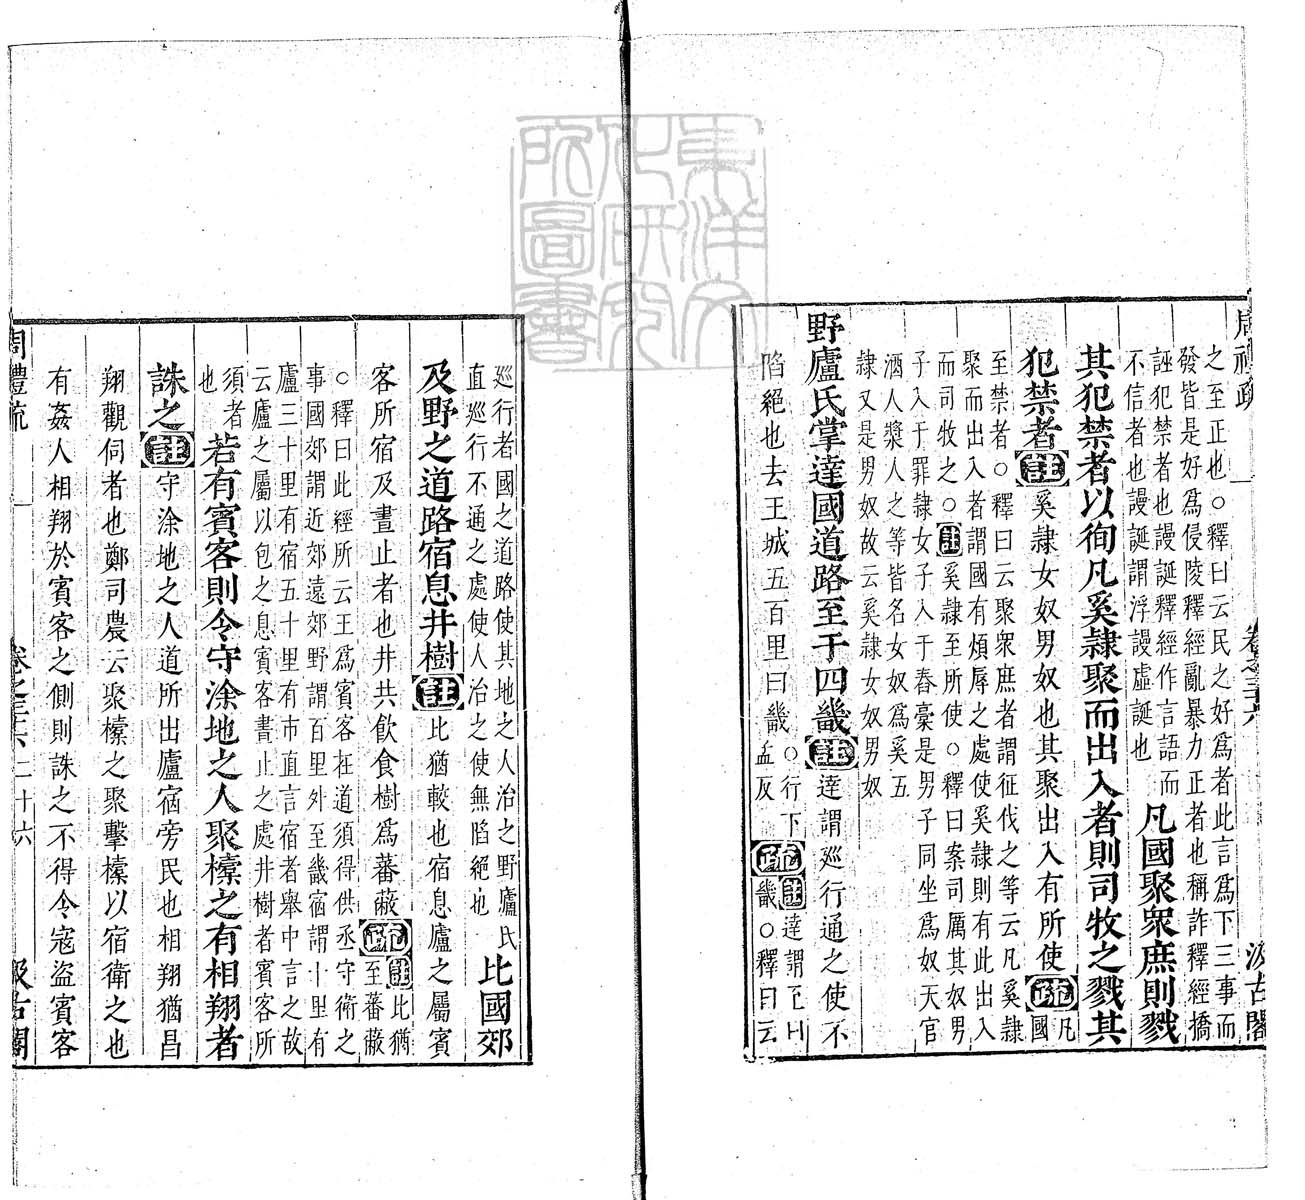 周禮疏
卷之三十六
汲古閣
之至正也○釋曰云民之好為者此言為下三事而
發皆是好為侵陵釋經亂暴力正者也稱詐釋經撟
誣犯禁者也謾誕釋經作言語而
不信者也謾誕謂浮謾虛誕也
凡國聚衆庶則戮
其犯禁者以徇凡奚隷聚而出入者則司牧之戮其
犯禁者
註
奚隷女奴男奴也其聚出入有所使
疏
凡
國
至禁者○釋曰云聚衆庶者謂征伐之等云凡奚隷
聚而出入者謂國有煩辱之處使奚隷則有此出入
而司牧之○註奚隷至所使○釋曰案司厲其奴男
子入于罪隷女子入于舂稾是男子同坐為奴天官
酒人漿人之等皆名女奴為奚五
隷又是男奴故云奚隷女奴男奴
野廬氏掌達國道路至于四畿
註
達謂巡行通之使不
陷絕也去王城五百里曰畿
○行下
孟反
疏
註達謂至曰
畿○釋曰云
巡行者國之道路使其地之人治之野廬氏
直巡行不通之處使人治之使無陷絕也
比國郊
及野之道路宿息井樹
註
比猶較也宿息廬之屬賓
客所宿及晝止者也井共飲食樹為蕃蔽
疏
註比猶
至蕃蔽
○釋曰此經所云王為賓客在道須得供丞守衛之
事國郊謂近郊遠郊野謂百里外至畿宿謂十里有
廬三十里有宿五十里有市直言宿者舉中言之故
云廬之屬以包之息賓客晝止之處井樹者賓客所
須者
也
若有賓客則令守涂地之人聚㯓之有相翔者
誅之
註
守涂地之人道所出廬宿旁民也相翔猶昌
翔觀伺者也鄭司農云聚㯓之聚擊㯓以宿衛之也
有姦人相翔於賓客之側則誅之不得令寇盜賓客
周禮疏
卷之三十六
二十六
汲古閣